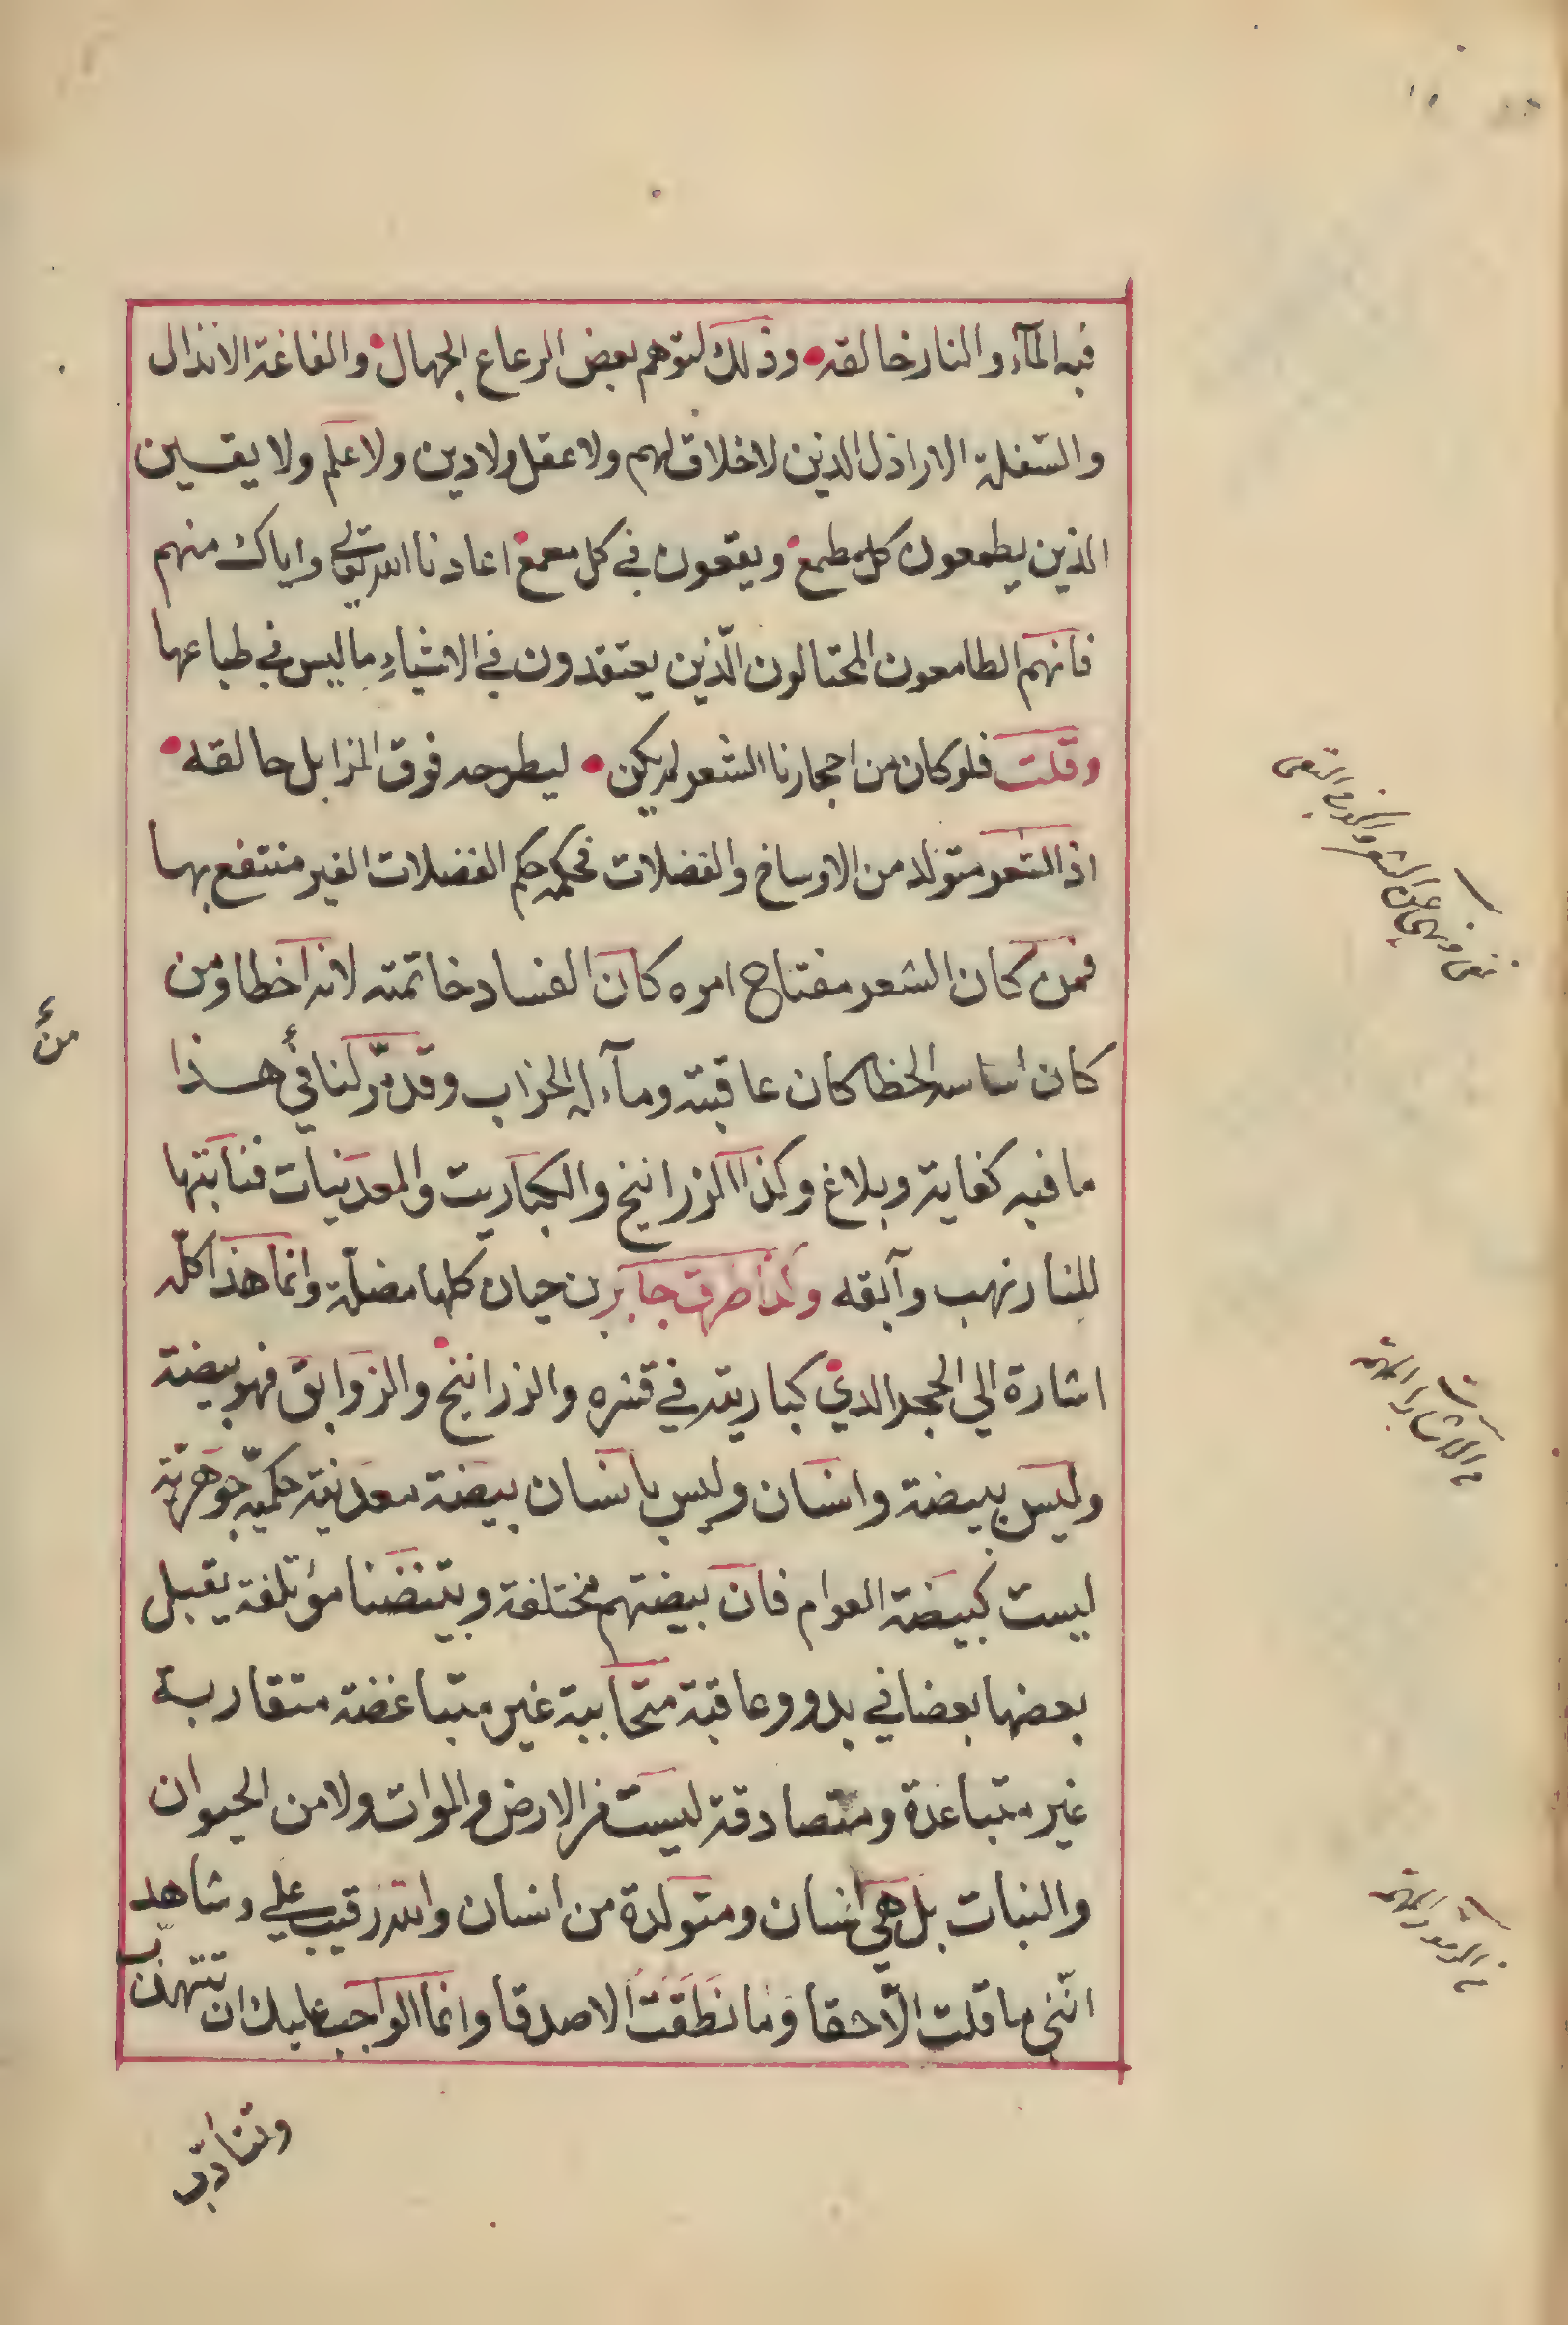 فيه المآء والنار خالقه وذلك لتوهم بعض الرعاع الجهال والغاغة الانذال
والسّفلة الاراذل الذين لاخلاق لهم ولا عقل ولا دين ولا علم ولا يقين
الذين يطمعون كل مطمع ويقعون في كل معمع اعاذنا الله تعالي واياك منهم
فانهم الطامعون المحتالون الّذين يعتقدون في الاشياء ماليس في طباعها
وقلت فلو كان من احجارنا الشعر لم يكن ليطرحه فوق المزابل حالقه
اذ الشعر متولد من الاوساخ والفضلات فحكمه حكم الفضلات الغير منتفع بها
فمن كان الشعر مفتاح امره كان الفساد خاتمته لانه اخطا ومن
كان أساسه الخطا كان عاقبته ومآء له الخراب وقد مرّ لنا في هذا
ما فيه كفاية وبلاغ وكذا الزرانيخ والكباريت والمعدنيات فنابتها
للنار نهب وآبقه وكذا طرق جابر بن حيان كلها مضلة وانما هذا كلّه
اشارة الي الحجر الدي كباريته في قشره والزرانيخ والزوابق فهو بيضة
وليس ببيضة وانسان وليس بانسان بيضة معدنية حكميّة جوهريّة
ليست كبيضة العوام فان بيضتهم مختلفة وبيضنا مؤتلفة يقبل
بعضها بعضا في بدو وعاقبة متحاببة غير متباغضة متقاربة
غير متباعدة ومتصادقة ليست من الارض والموات ولا من الحيوان
والنبات بل هي انسان ومتولدة من انسان والله رقيب علي وشاهد
انّني ما قلت الّا حقا وما نطقت الا صدقا وانما الواجب عليك ان تتهذّب
وتتادّب